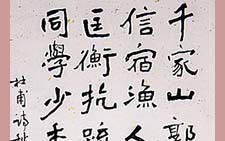 千家山郭
信宿漁人
匡衡抗疏
同學少
杜甫詩